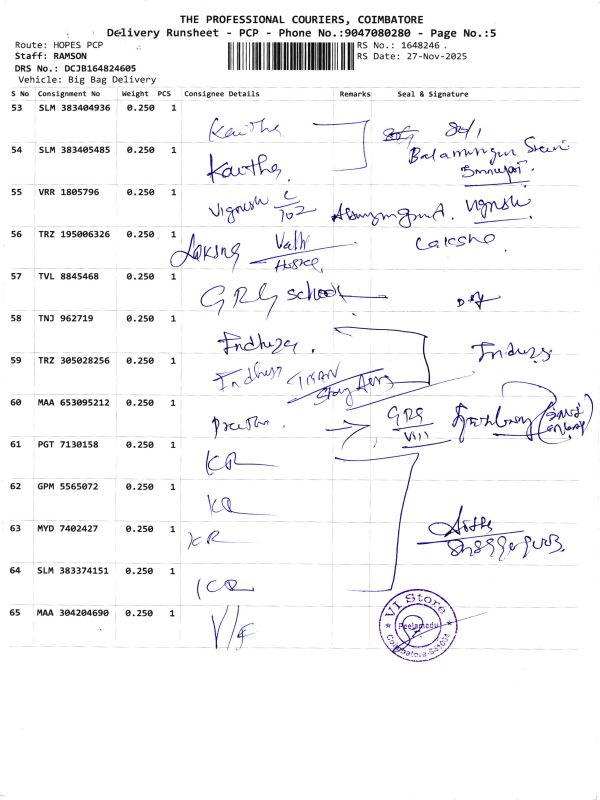 THE PROFESSIONAL COURIERS, COIMBATORE
Delivery Runsheet - PCP - Phone No.:9047080280 - Page No.:5
Route: HOPES PCP
RS No.: 1648246 .
Staff: RAMSON
RS Date: 27-Nov-2025
DRS No.: DCJB164824605
Vehicle: Big Bag Delivery
S No Consignment No Weight PCS Consignee Details Remarks Seal & Signature
53 SLM 383404936 0.250 1 Kavitha
54 SLM 383405485 0.250 1 Kavitha.
55 VRR 1805796 0.250 1 Vignesh C 702 Vignesh
56 TRZ 195006326 0.250 1 Laksha
57 TVL 8845468 0.250 1 GRG school
58 TNJ 962719 0.250 1 Indhuja .
59 TRZ 305028256 0.250 1 Indhuja
60 MAA 653095212 0.250 1 GRG VIII
61 PGT 7130158 0.250 1 KR
62 GPM 5565072 0.250 1 KR
63 MYD 7402427 0.250 1 KR
64 SLM 383374151 0.250 1 KR
65 MAA 304204690 0.250 1
VI Store
Peelamedu
Coimbatore-641004